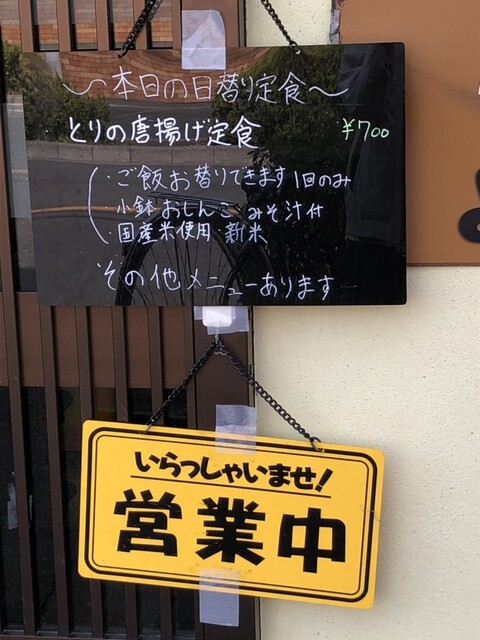 〜本日の日替り定食〜
とりの唐揚げ定食 ¥700
・ご飯お替りできます1回のみ
・小鉢 おしんこ みそ汁付
・国産米使用・新米
その他メニューあります
いらっしゃいませ!
営業中